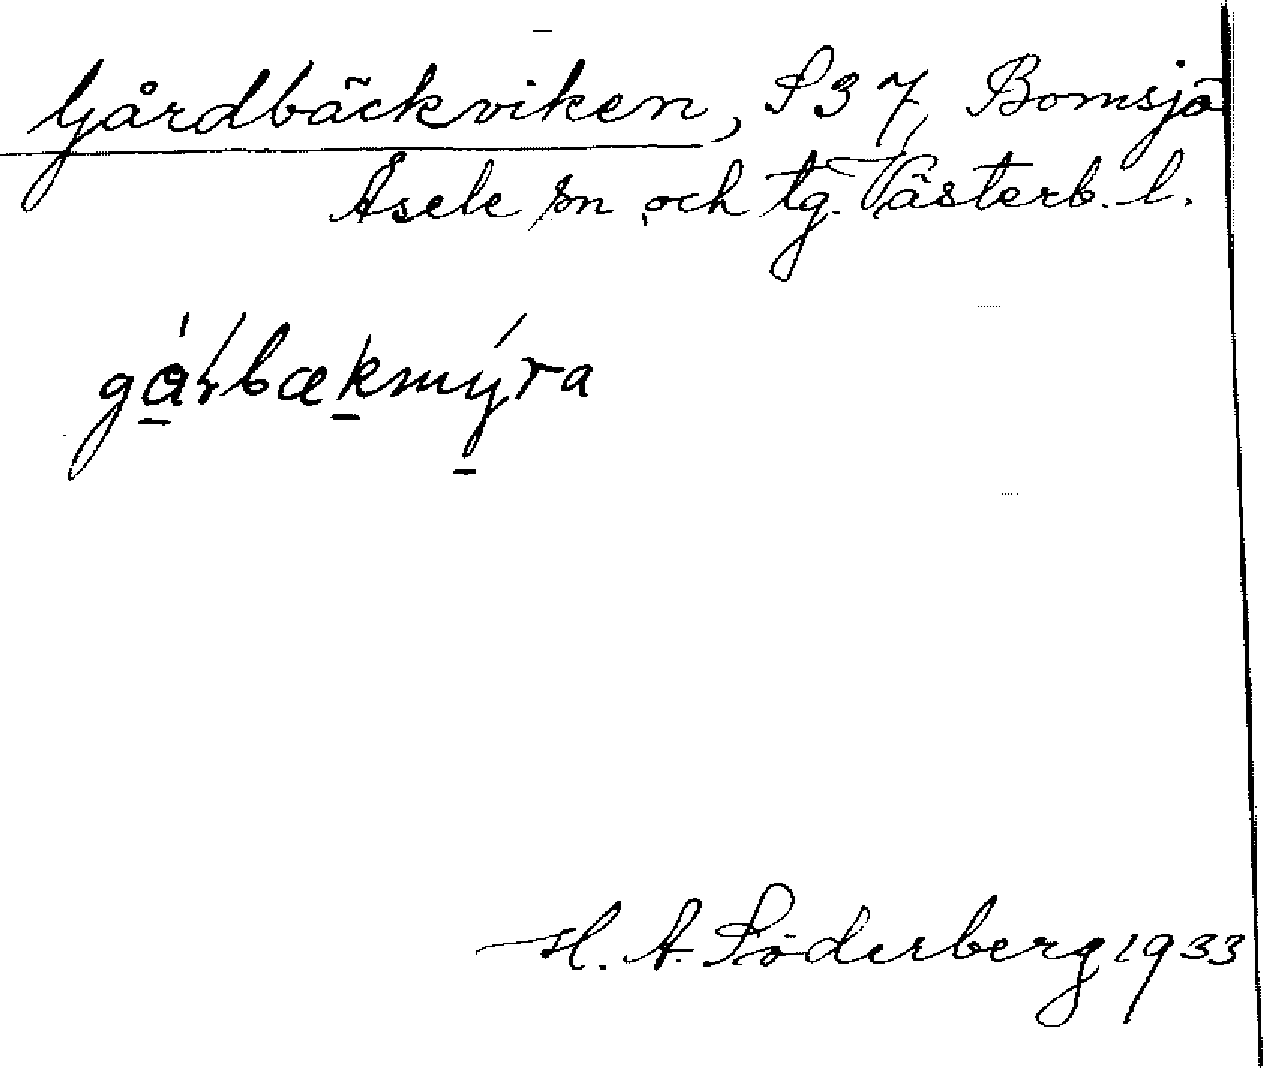 Gårdbäckviken, S 37, Bomsjö
Åsele sn och tg. Västerb. l.
gárbækmýra
H. A. Söderberg 1933